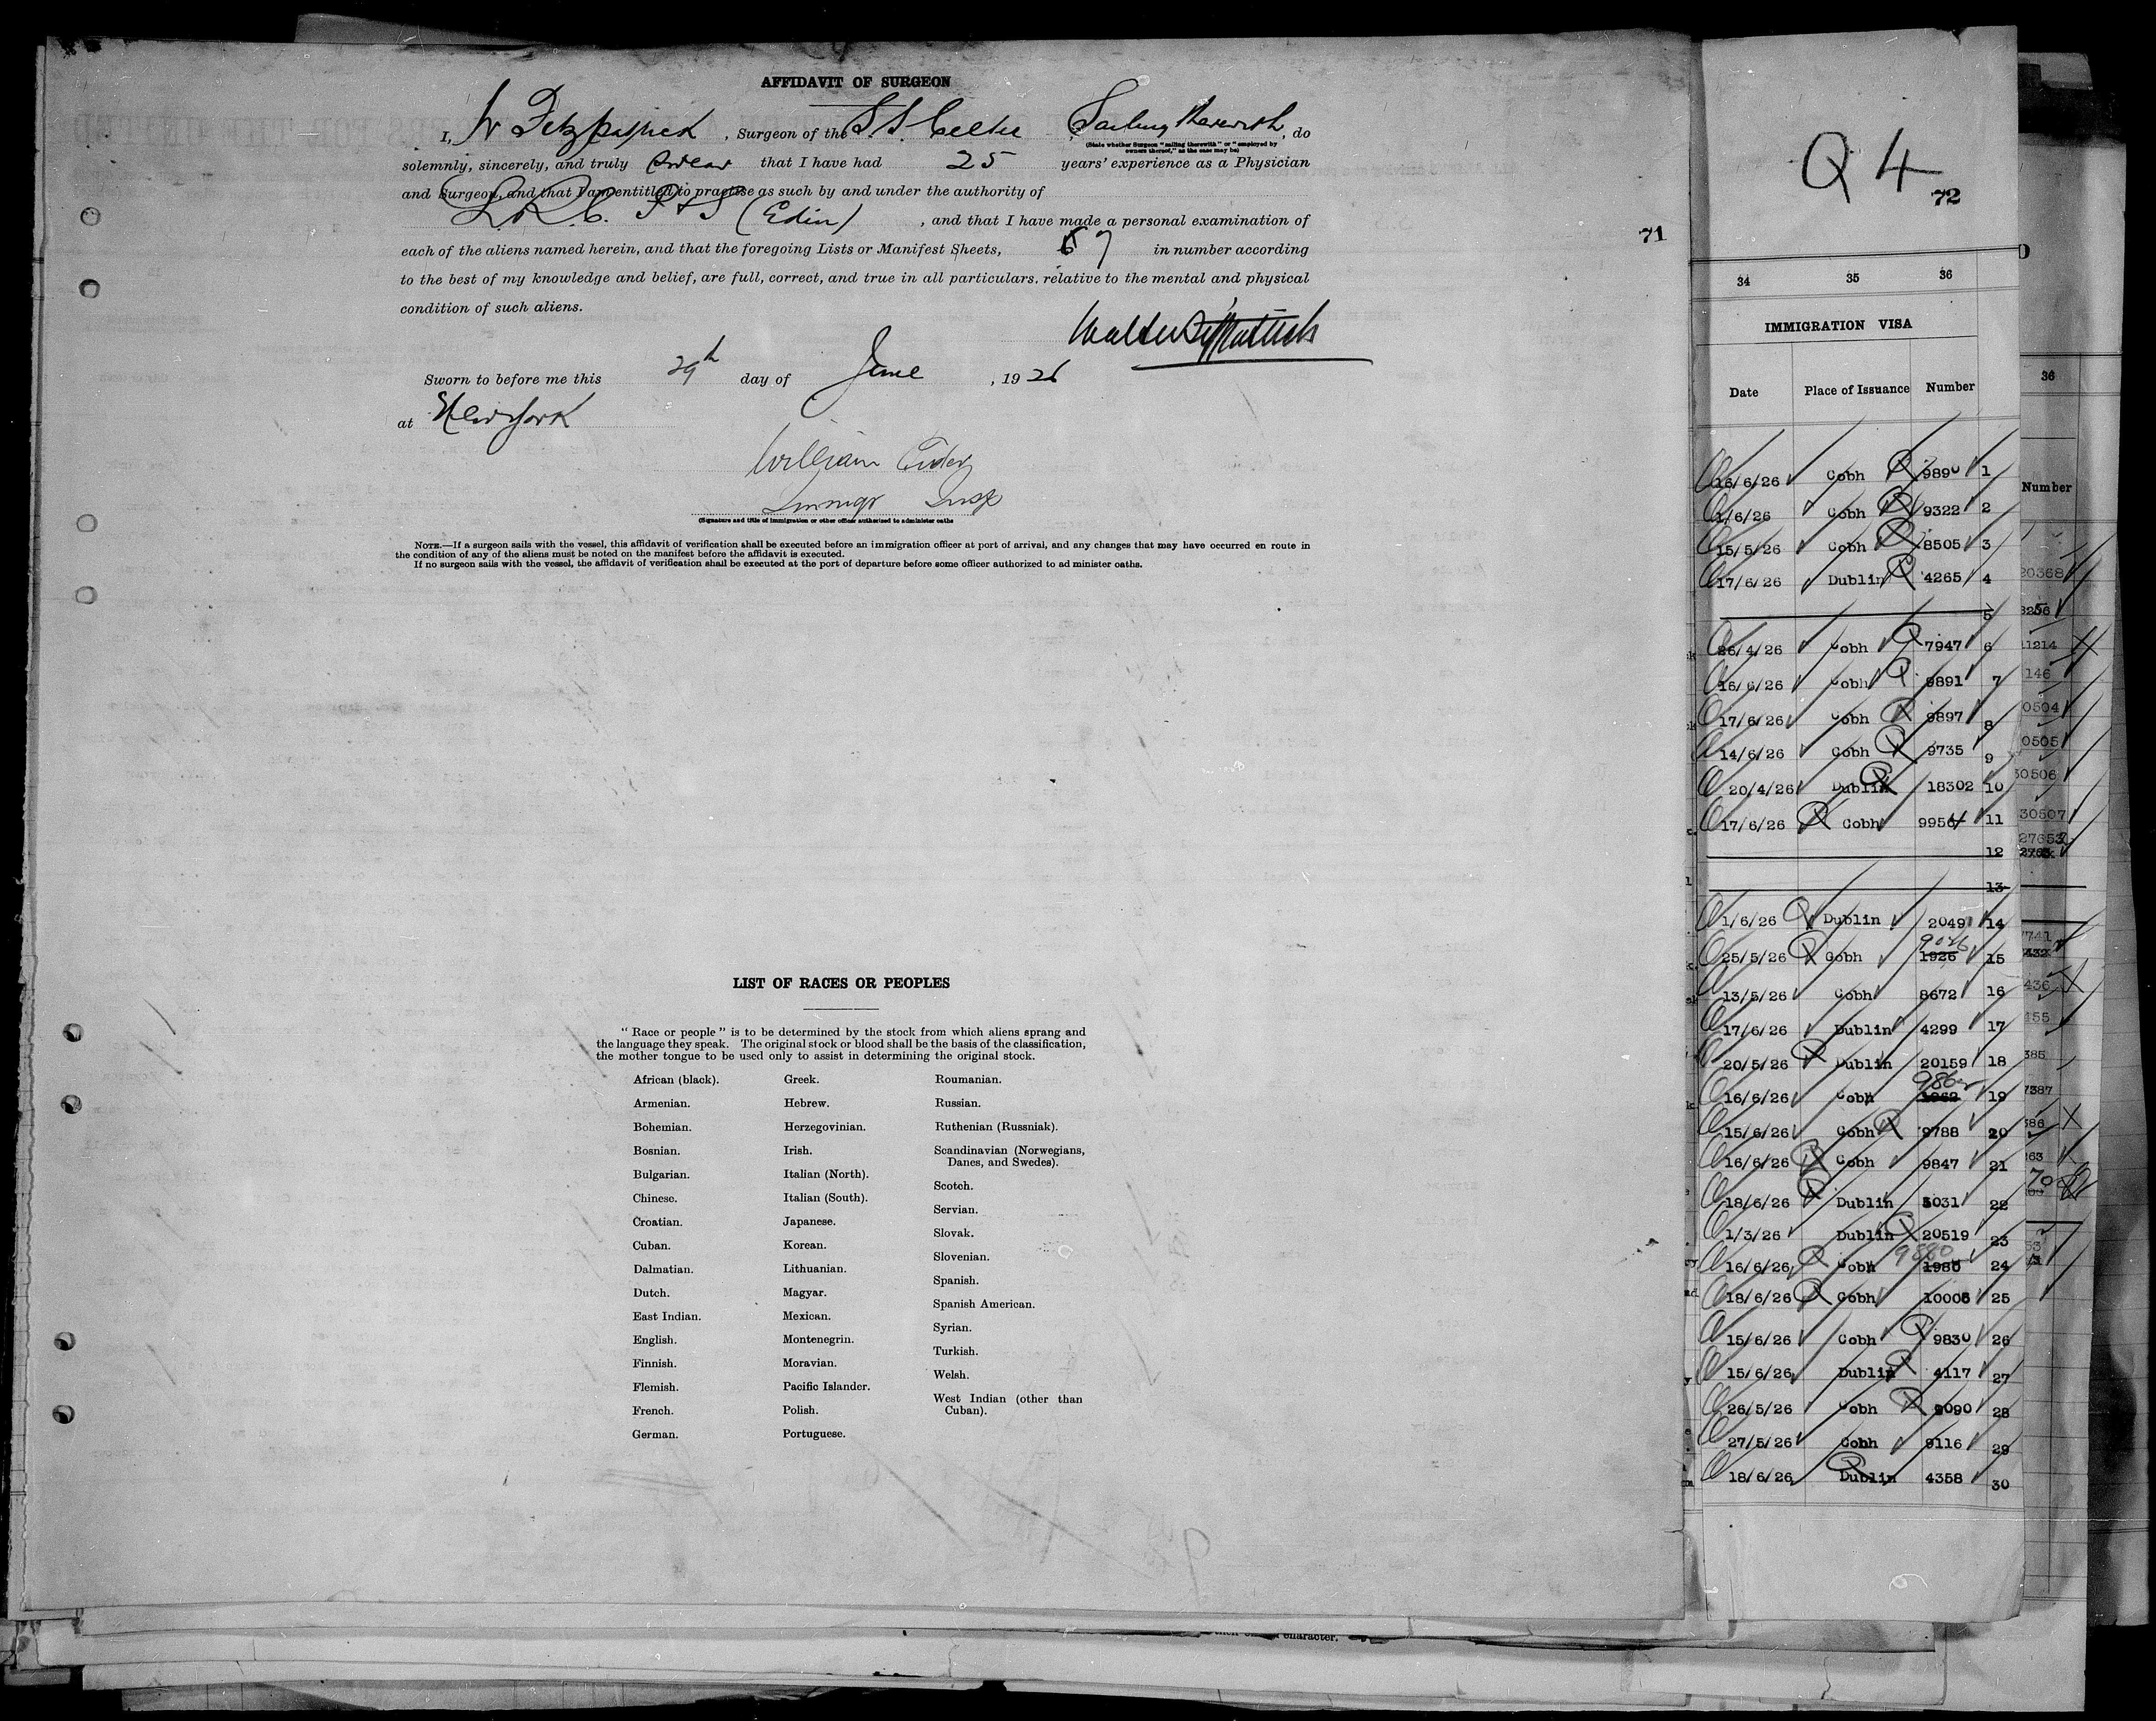 AFFIDAVIT OF SURGEON
I, W Fitzpatrick, Surgeon of the S.S. Celtic Sailing therewith, do
(State whether Surgeon "sailing therewith" or "employed by
owners thereof," as the case may be)
solemnly, sincerely, and truly swear that I have had 25 years' experience as a Physician
and Surgeon, and that I am entitled to practise as such by and under the authority of
L.R.C. P & S (Edin), and that I have made a personal examination of
each of the aliens named herein, and that the foregoing Lists or Manifest Sheets, 67 in number according
to the best of my knowledge and belief, are full, correct, and true in all particulars, relative to the mental and physical
condition of such aliens.
Walter Fitzpatrick
Sworn to before me this 29th day of June, 1926
at New York
William
Immigr Insp
(Signature and title of immigration or other officer authorized to administer oaths
NOTE.—If a surgeon sails with the vessel, this affidavit of verification shall be executed before an immigration officer at port of arrival, and any changes that may have occurred en route in
the condition of any of the aliens must be noted on the manifest before the affidavit is executed.
If no surgeon sails with the vessel, the affidavit of verification shall be executed at the port of departure before some officer authorized to ad minister oaths.
71
LIST OF RACES OR PEOPLES
"Race or people" is to be determined by the stock from which aliens sprang and
the language they speak. The original stock or blood shall be the basis of the classification,
the mother tongue to be used only to assist in determining the original stock.
African (black).
Armenian.
Bohemian.
Bosnian.
Bulgarian.
Chinese.
Croatian.
Cuban.
Dalmatian.
Dutch.
East Indian.
English.
Finnish.
Flemish.
French.
German.
Greek.
Hebrew.
Herzegovinian.
Irish.
Italian (North).
Italian (South).
Japanese.
Korean.
Lithuanian.
Magyar.
Mexican.
Montenegrin.
Moravian.
Pacific Islander.
Polish.
Portuguese.
Roumanian.
Russian.
Ruthenian (Russniak).
Scandinavian (Norwegians,
Danes, and Swedes).
Scotch.
Servian.
Slovak.
Slovenian.
Spanish.
Spanish American.
Syrian.
Turkish.
Welsh.
West Indian (other than
Cuban).
Q 4
72
34 35 36
IMMIGRATION VISA
Date Place of Issuance Number
16/6/26 Cobh 9890 1
1/6/26 Cobh 9322 2
15/5/26 Cobh 8505 3
17/6/26 Dublin 4265 4
5
26/4/26 Cobh 7947 6
16/6/26 Cobh 9891 7
17/6/26 Cobh 9897 8
14/6/26 Cobh 9735 9
20/4/26 Dublin 18302 10
17/6/26 Cobh 9954 11
12
13
1/6/26 Dublin 2049 14
9046
25/5/26 Cobh 1926 15
13/5/26 Cobh 8672 16
17/6/26 Dublin 4299 17
20/5/26 Dublin 20159 18
16/6/26 Cobh 1962 19
15/6/26 Cobh 9788 20
16/6/26 Cobh 9847 21
18/6/26 Dublin 5031 22
1/3/26 Dublin 20519 23
9880
16/6/26 Cobh 1980 24
18/6/26 Cobh 10006 25
15/6/26 Cobh 9830 26
15/6/26 Dublin 4117 27
26/5/26 Cobh 9090 28
27/5/26 Cobh 9116 29
18/6/26 Dublin 4358 30
36
Number
20368
11214
146
0504
0505
30506
30507
27653
7741
436
455
385
7387
386
263
70
53
character.